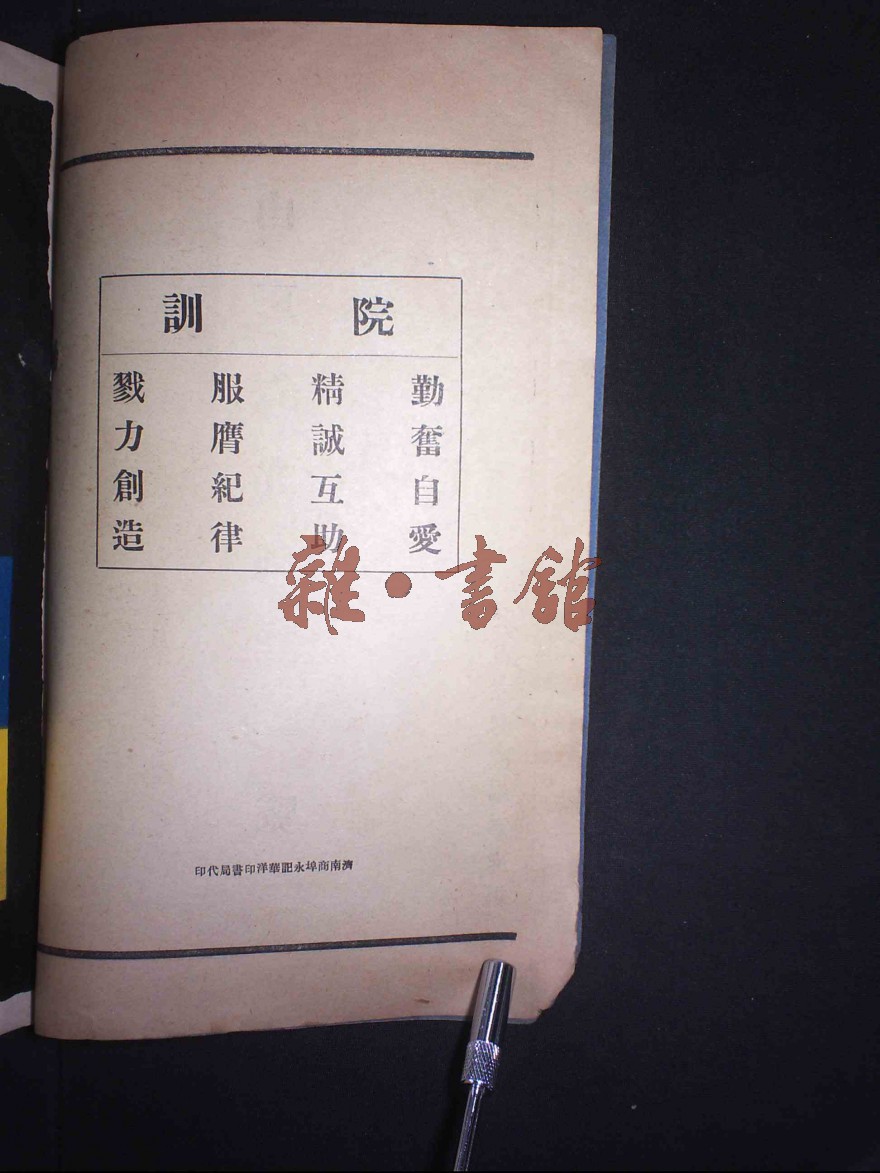 院訓
勤奮自愛
精誠互助
服膺紀律
戮力創造
濟南商埠永記華洋印書局代印
雜·書館